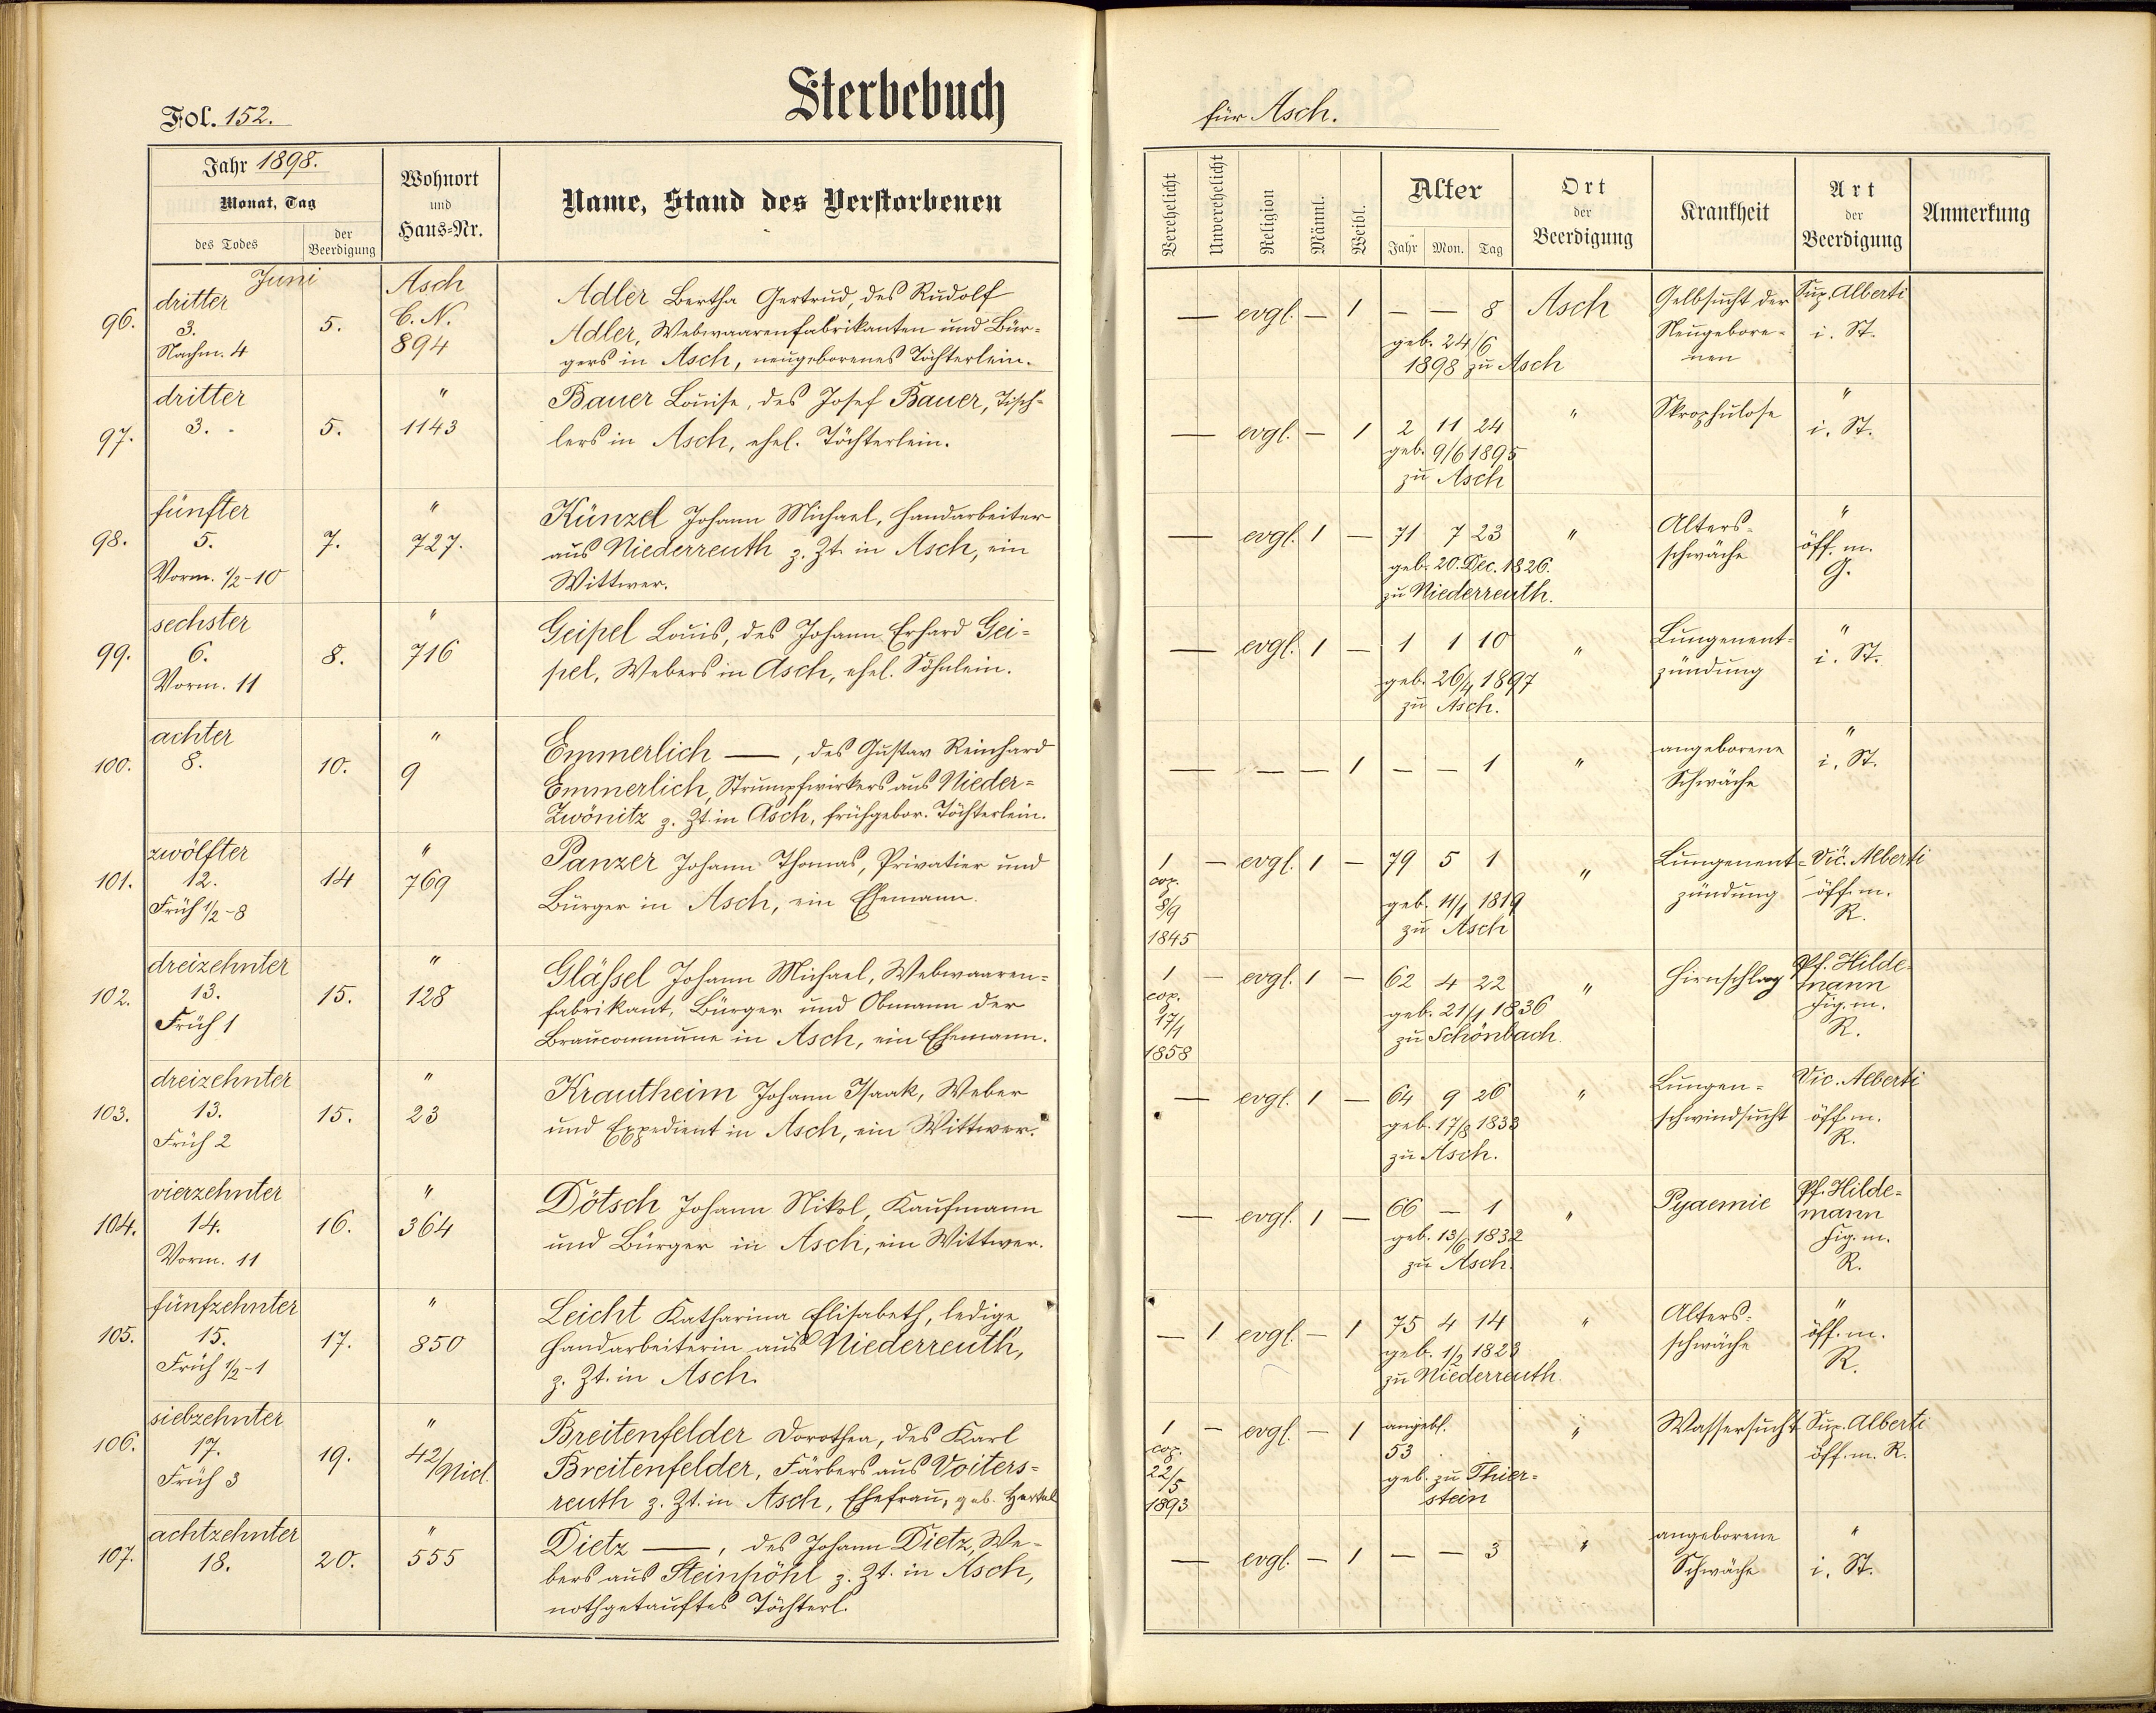 Sterbebuch
Fol. 152.
für Asch.
Jahr 1898.
Monat, Tag
des Todes
der Beerdigung
Wohnort
und
Haus-Nr.
Name, Stand des Verstorbenen
Verehelicht
Unverehelicht
Religion
Männl.
Weibl.
Alter
Jahr Mon. Tag
Ort
der
Beerdigung
Krankheit
Art
der
Beerdigung
Anmerkung
Juni
96. dritter 3. Nachm. 4
5.
Asch C. N. 894
Adler Bertha Gertrud, des Rudolf
Adler, Webwaarenfabrikanten und Bür-
gers in Asch, neugeborenes Töchterlein.
— evgl. — 1 — — 8
geb. 24/6
1898 zu Asch
Asch
Gelbsucht der
Neugebore-
nen
Sup. Alberti
i. St.
97. dritter 3.
5.
" 1143
Bauer Louise, des Josef Bauer, Tisch-
lers in Asch, ehel. Töchterlein.
— evgl. — 1 2 11 24
geb. 9/6 1895
zu Asch
"
Skrophulose
"
i. St.
98. fünfter 5. Vorm. 1/2-10
7.
" 727.
Künzel Johann Michael, Handarbeiter
aus Niederreuth z. Zt. in Asch, ein
Wittwer.
— evgl. 1 — 71 7 23
geb. 20. Dec. 1826.
zu Niederreuth.
"
Alters-
schwäche
"
öff. m.
G.
99. sechster 6. Vorm. 11
8.
" 716
Geipel Louis, des Johann Erhard Gei-
pel, Webers in Asch, ehel. Söhnlein.
— evgl. 1 — 1 1 10
geb. 26/4 1897
zu Asch.
"
Lungenent-
zündung
"
i. St.
100. achter 8.
10.
" 9
Emmerlich —, des Gustav Reinhard
Emmerlich, Strumpfwirkers aus Nieder-
Zwönitz z. Zt. in Asch, frühgebor. Töchterlein.
— — — 1 — — 1
"
angeborene
Schwäche
"
i. St.
101. zwölfter 12. Früh 1/2-8
14
" 769
Panzer Johann Thomas, Privatier und
Bürger in Asch, ein Ehemann.
1 — evgl. 1 — 79 5 1
cop.
8/9
1845
geb. 11/1 1819
zu Asch
"
Lungenent-
zündung
Vic. Alberti
öff. m.
R.
102. dreizehnter 13. Früh 1
15.
" 128
Gläßel Johann Michael, Webwaaren-
fabrikant, Bürger und Obmann der
Braucommune in Asch, ein Ehemann.
1 — evgl. 1 — 62 4 22
cop.
17/1
1858
geb. 21/1 1836
zu Schönbach.
"
Hirnschlag
Pf. Hilde-
mann
Fig. m.
R.
103. dreizehnter 13. Früh 2
15.
" 23
Krautheim Johann Isaak, Weber
und Expedient in Asch, ein Wittwer.
— evgl. 1 — 64 9 26
geb. 17/8 1833
zu Asch.
"
Lungen-
schwindsucht
Vic. Alberti
öff. m.
R.
104. vierzehnter 14. Vorm. 11
16.
" 364
Dötsch Johann Nikol, Kaufmann
und Bürger in Asch, ein Wittwer.
— evgl. 1 — 66 — 1
geb. 13/6 1832
zu Asch.
"
Pyaemie
Pf. Hilde-
mann
Fig. m.
R.
105. fünfzehnter 15. Früh 1/2-1
17.
" 850
Leicht Katharina Elisabeth, ledige
Handarbeiterin aus Niederreuth,
z. Zt. in Asch.
— 1 evgl. — 1 75 4 14
geb. 1/2 1823
zu Niederreuth.
"
Alters-
schwäche
"
öff. m.
R.
106. siebzehnter 17. Früh 3
19.
" 42/Nied.
Breitenfelder Dorothea, des Karl
Breitenfelder, Färbers aus Voiters-
reuth z. Zt. in Asch, Ehefrau, geb. Hertel
1 — evgl. — 1 angebl.
cop.
22/5
1893
53
geb. zu Thier-
stein
"
Wassersucht
Sup. Alberti
öff. m. R.
107. achtzehnter 18.
20.
" 555
Dietz —, des Johann Dietz, We-
bers aus Steinpöhl z. Zt. in Asch,
nothgetauftes Töchterl.
— evgl. — 1 — — 3
"
angeborene
Schwäche
"
i. St.